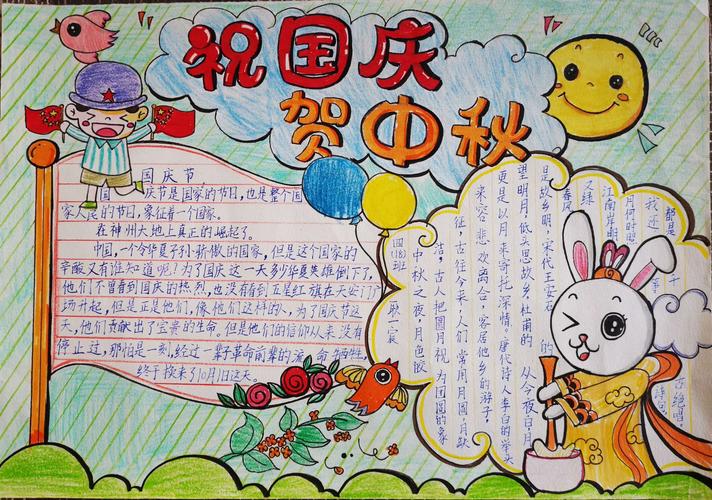 祝国庆
贺中秋
国庆节
国庆节是国家的节日,也是整个国
家人民的节日,象征着一个国家。
在神州大地上真正的崛起了。
中国,一个令华夏子孙骄傲的国家,但是这个国家的
辛酸又有谁知道呢?为了国庆这一天多少华夏英雄倒下了,
他们不曾看到国庆的热烈,也没有看到五星红旗在天安门广
场升起,但是正是他们,像他们这样的人,为了国庆节这
天,他们贡献出了宝贵的生命,但是他们的信仰从来没有
停止过,那怕是一刻,经过一辈子革命前辈的流 命牺牲,
终于换来了10月1日这天。
四(18)班
耿一宸
中秋之夜,月色皎
洁,古人把圆月视为团圆的象
征,古往今来,人们常用月圆,月缺
来容悲欢离合,客居他乡的游子,
更是以月来寄托深情。唐代诗人李白的举头
望明月,低头思故乡,杜甫的从今夜白,月
是故乡明,宋代王安石的
春风
又绿
江南岸,明
月何时照
我还
都是千
绝唱
诗句